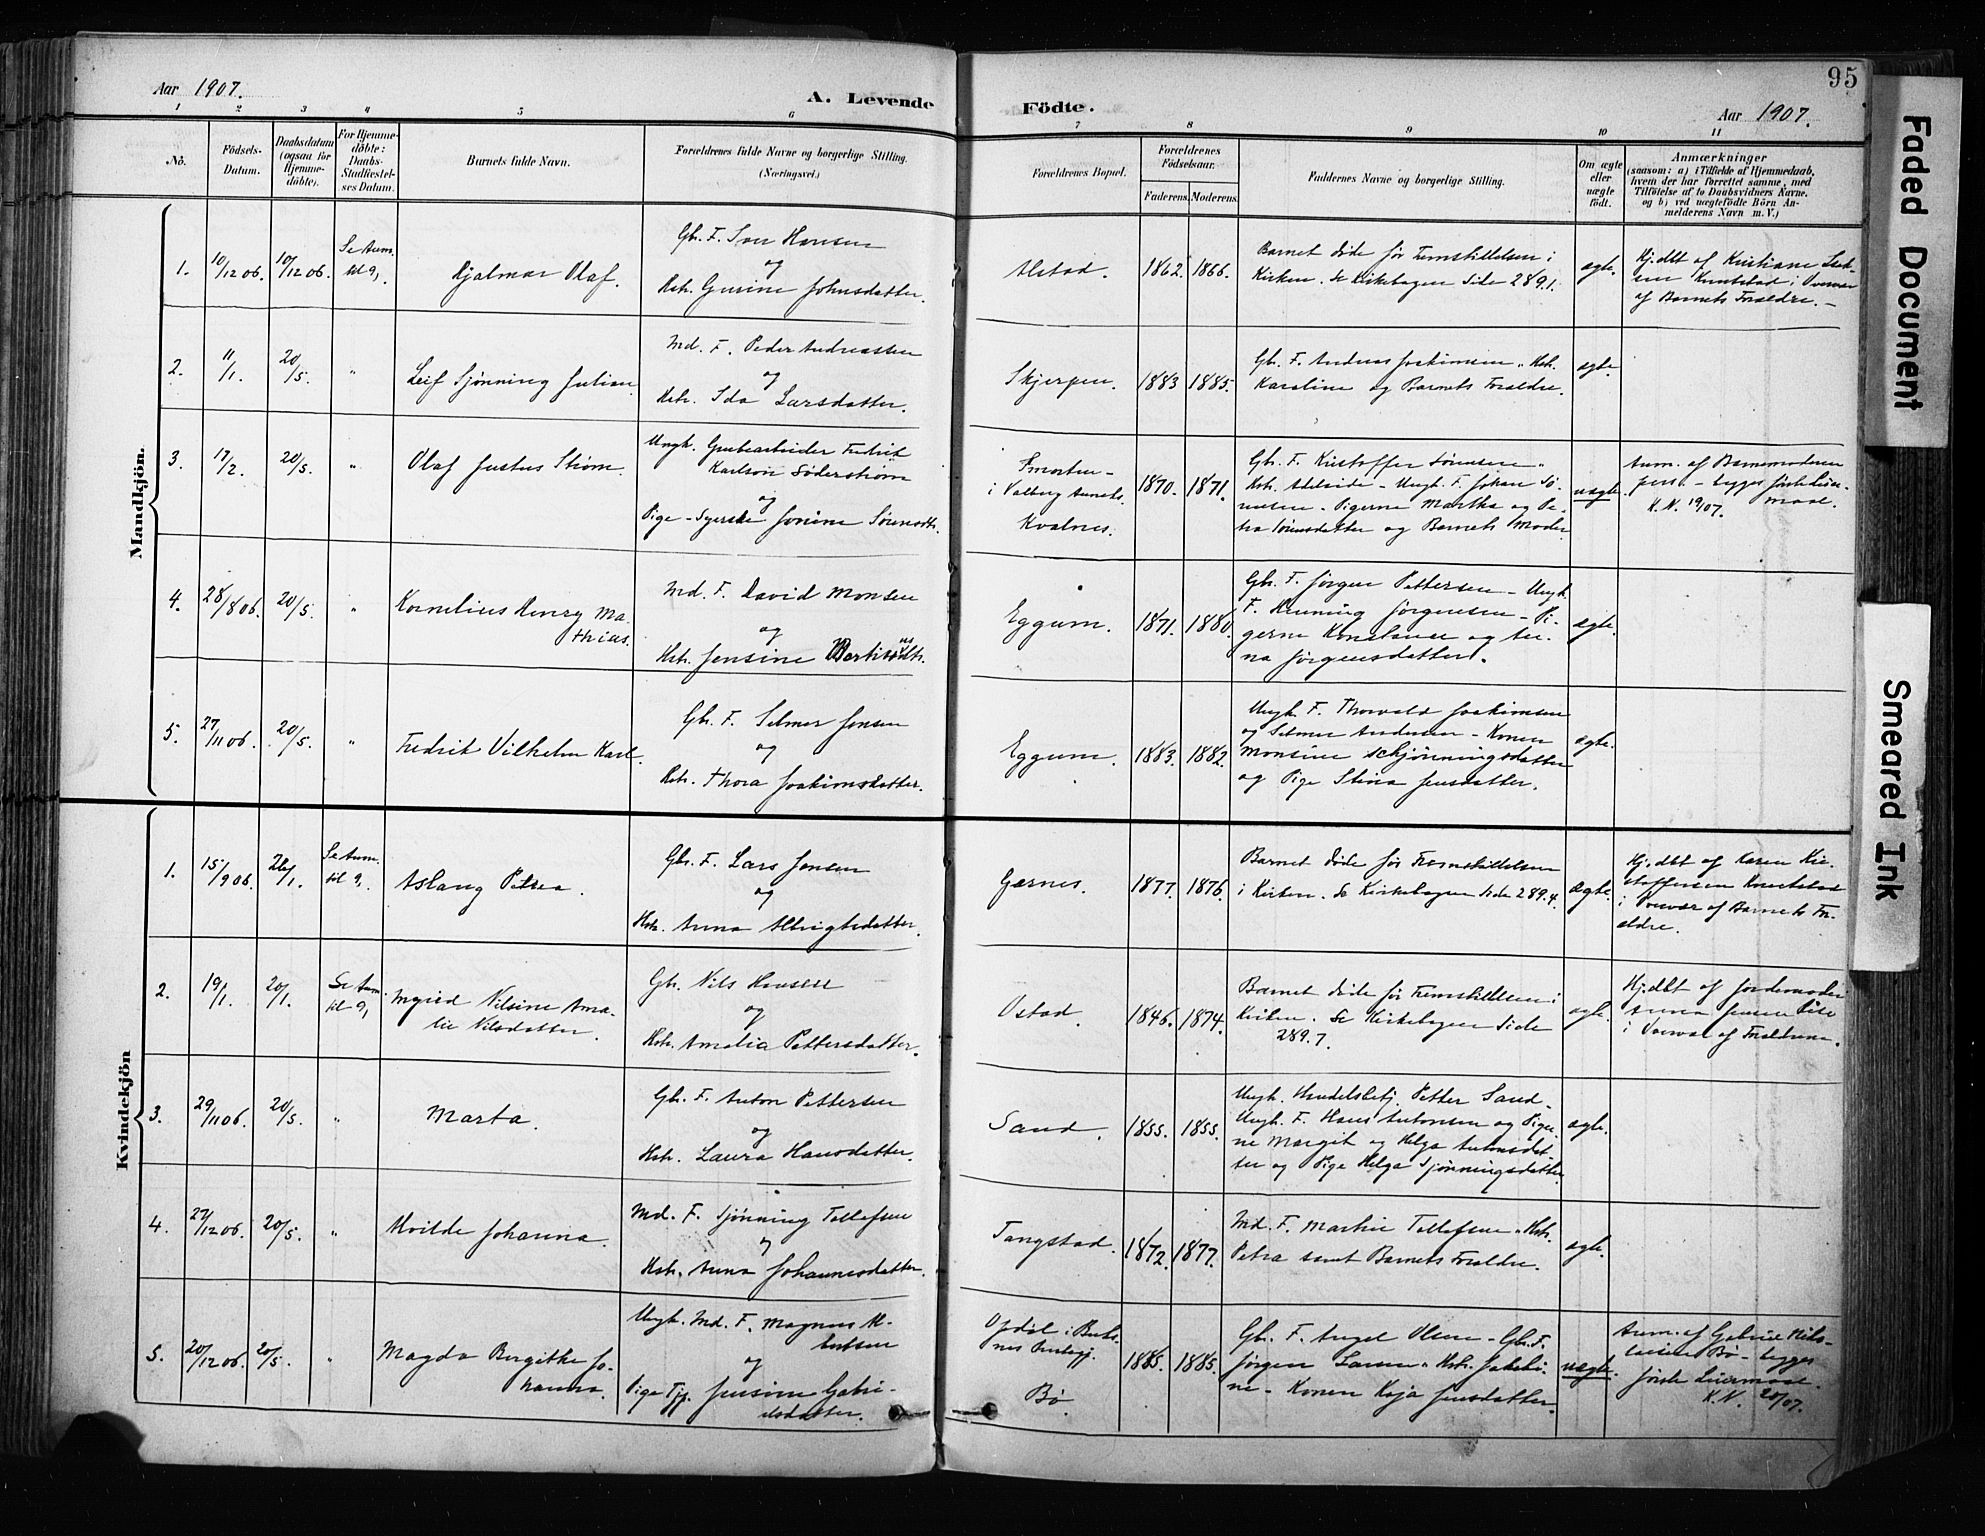 95
Aar 1907.
A. Levende Födte.
Aar 1907.
1 2 3 4 5 6 7 8 9 10 11
No.
Födsels-
Datum.
Daabsdatum
(ogsaa for
Hjemme-
döbte).
For Hjemme-
döbte:
Daabs-
Stadfæstel-
ses Datum.
Barnets fulde Navn.
Forældrenes fulde Navne og borgerlige Stilling.
(Næringsvei.)
Forældrenes Bopæl.
Forældrenes
Födselsaar.
Faderens.
Moderens.
Faddernes Navne og borgerlige Stilling.
Om ægte
eller
uægte
födt.
Anmærkninger
(saasom: a) i Tilfælde af Hjemmedaab,
hvem der har forrettet samme, med
Tilföielse af to Daabsvidners Navne,
og b) ved uægtefödte Börn An-
melderens Navn m. V.)
Mandkjön.
1.
10/12 06.
10/12 06.
Se Anm.
til 9,
Hjalmar Olaf.
Gbr. F. Hansen
og
Hstr. Gurine Johnsdatter.
Alstad.
1862.
1866.
Barnet döde för Fremstillelsen i
Kirken. Se Kirkebogen Side 289.1.
ægte.
Hj.dbt af Kristiane
Knutstad i
af Barnets Forældre.
2.
11/1.
20/5.
"
Leif Sjønning Julian.
Md. F. Peder Andreassen
og
Hstr. Ida Larsdatter.
Skjerpen.
1883
1885.
Gbr. F. Andreas Joakimsen, Hstr.
Karoline og Barnets Forældre.
ægte.
3.
17/2.
20/5.
"
Olaf Justus Strøm.
Ungk. Grubearbeider Fredrik
Karlson Söderström
og
Pige - Syerske Jonine
i Valberg Anneks.
Kvalnes.
1870.
1871.
Gbr. F. Kristoffer Sörensen
Hstr. - Ungk. F. Johan Sö-
rensen. Pigerne Martha og Pe-
tra Sörensdatter og Barnets Moder
uægte.
Anm. af Barnemoderen
- begges förste Leier-
maal.
K.N. 19/07.
4.
28/8 06.
20/5.
"
Kornelius Henry Ma-
thias.
Md. F. David Monsen
og
Hstr. Jensine
Eggum.
1871.
1880.
Gbr. F. Jørgen Pettersen - Ungk.
F. Henning Jørgensen - Pi-
gerne Konstanse og
na Jørgensdatter.
ægte.
5.
27/11 06.
20/5.
"
Fredrik Vilhelm Karl.
Gbr. F. Selmer Jensen
og
Hstr. Thora Joakimsdatter.
Eggum.
1883.
1882.
Ungk. F. Thorvald Joakimsen
og Selmer Andersen - Konen
Monsine Schjønningsdatter
og Pige Stina Jensdatter.
ægte.
Kvindekjön
1.
15/9 06.
26/1.
Se Anm.
til 9,
Aslaug Petrea.
Gbr. F. Lars Jensen
og
Hstr. Anna Albrigtsdatter.
Gærnes.
1877.
1876.
Barnet döde för Fremstillelsen
i Kirken. Se Kirkebogen Side 289.4.
ægte.
Hj.dbt af Karen Kri-
stoffersen Knutstad
i Overvær af Barnets For-
ældre.
2.
19/1.
20/1.
Se Anm.
til 9,
Ingrid Nilsine Ama-
lie Nilsdatter.
Gbr. Nils Hansen
og
Hstr. Amalia Pettersdatter.
Ostad.
1846.
1874.
Barnet döde för Fremstillelsen i
Kirken. Se Kirkebogen Side
289.7.
ægte.
Hj.dbt af Jordemoder
Anna Jensen
i Overvær af Forældrene.
3.
29/11 06.
20/5.
"
Marta.
Gbr. F. Anton Pettersen
og
Hstr. Laura Hansdatter.
Sand.
1855.
1855.
Ungk. Handelsbetj. Petter Sand -
Ungk. F. Hans Antonsen og Piger-
ne Margit og Helga Antonsdat-
ter og Pige Helga Sjønningsdatter
ægte.
4.
27/12 06.
20/5.
"
Alvilde Johanna.
Md. F. Sjønning Tollefsen
og
Hstr. Anna Johannesdatter.
Tangstad.
1872.
1877.
Md. F. Martin Tollefsen, Hstr.
Petra samt Barnets Forældre.
ægte.
5.
20/12 06.
20/5.
"
Magda Bergitte Jo-
hanna.
Ungk. Md. F. Magnus Al-
bertsen
og
Pige Tjp. Jensine Gabri-
elsdatter.
Opdöl i Buks-
nes
Bø.
1885.
1885.
Gbr. F. Angel Olsen - Gbr. F.
Jørgen Larsen, Hstr. Jakobi-
ne - Konen Kaja Jensdatter.
uægte.
Anm. af Gabriel
Bø - begges
förste Leiermaal.
K.N. 20/07.
Faded Document
Smeared Ink